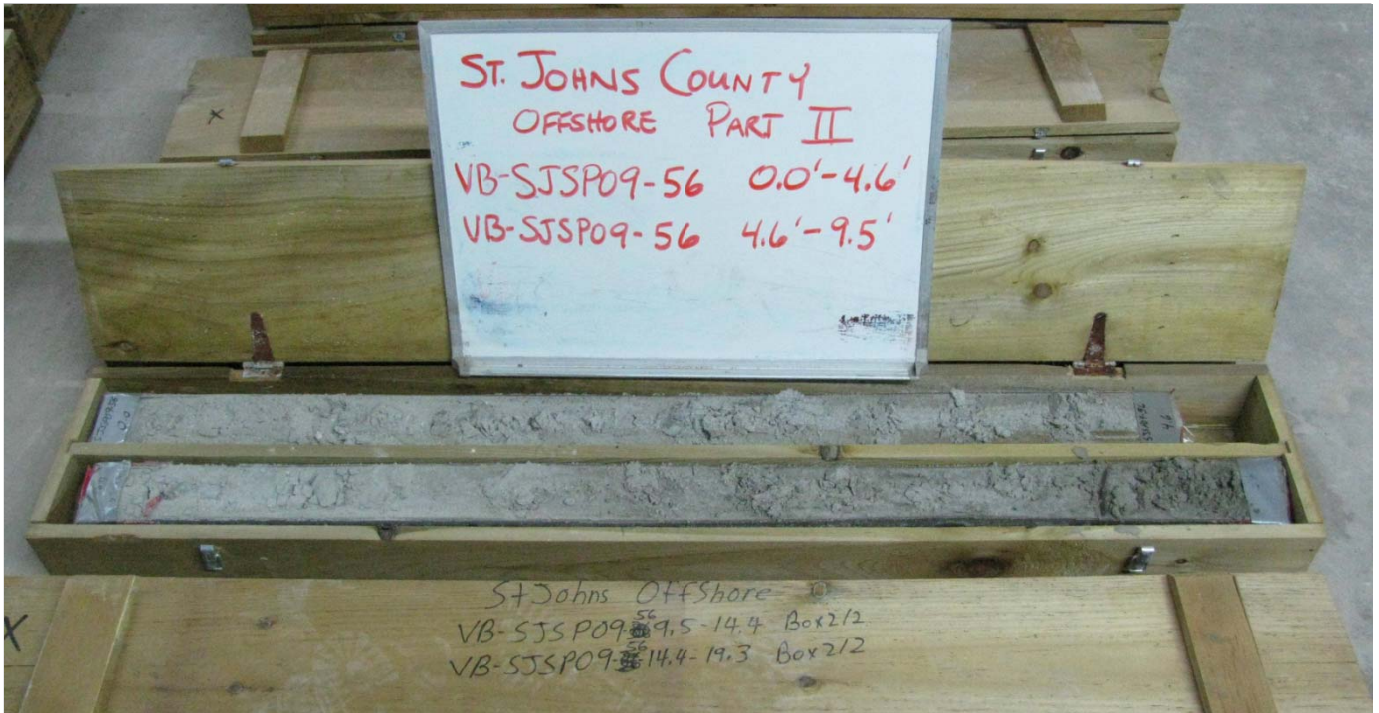 ST. JOHNS COUNTY
OFFSHORE PART II
VB-SJSP09-56 0.0'-4.6'
VB-SJSP09-56 4.6'-9.5'
0.0
4.6
St Johns Offshore
VB-SJSP09-56 9.5-14.4 Box 2/2
VB-SJSP09-56 14.4-19.3 Box 2/2
X
X